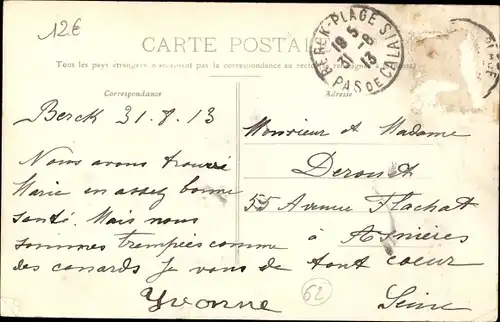 12€
CARTE POSTALE
BERCK-PLAGE
18 5
31 -8
13
PAS DE CALAIS
Tous les pays étrangers n'acceptent pas la correspondance au recto
Correspondance
Adresse
Berck 31.8.13
Nous avons trouvé
Marie en assez bonne
santé. Mais nous
sommes trempées comme
des canards Je vous de tout cœur
Yvonne
Monsieur et Madame
55 Avenue Flachat
à Asnières
Seine
62